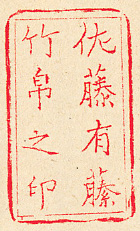 佐藤有藤
竹帛之印